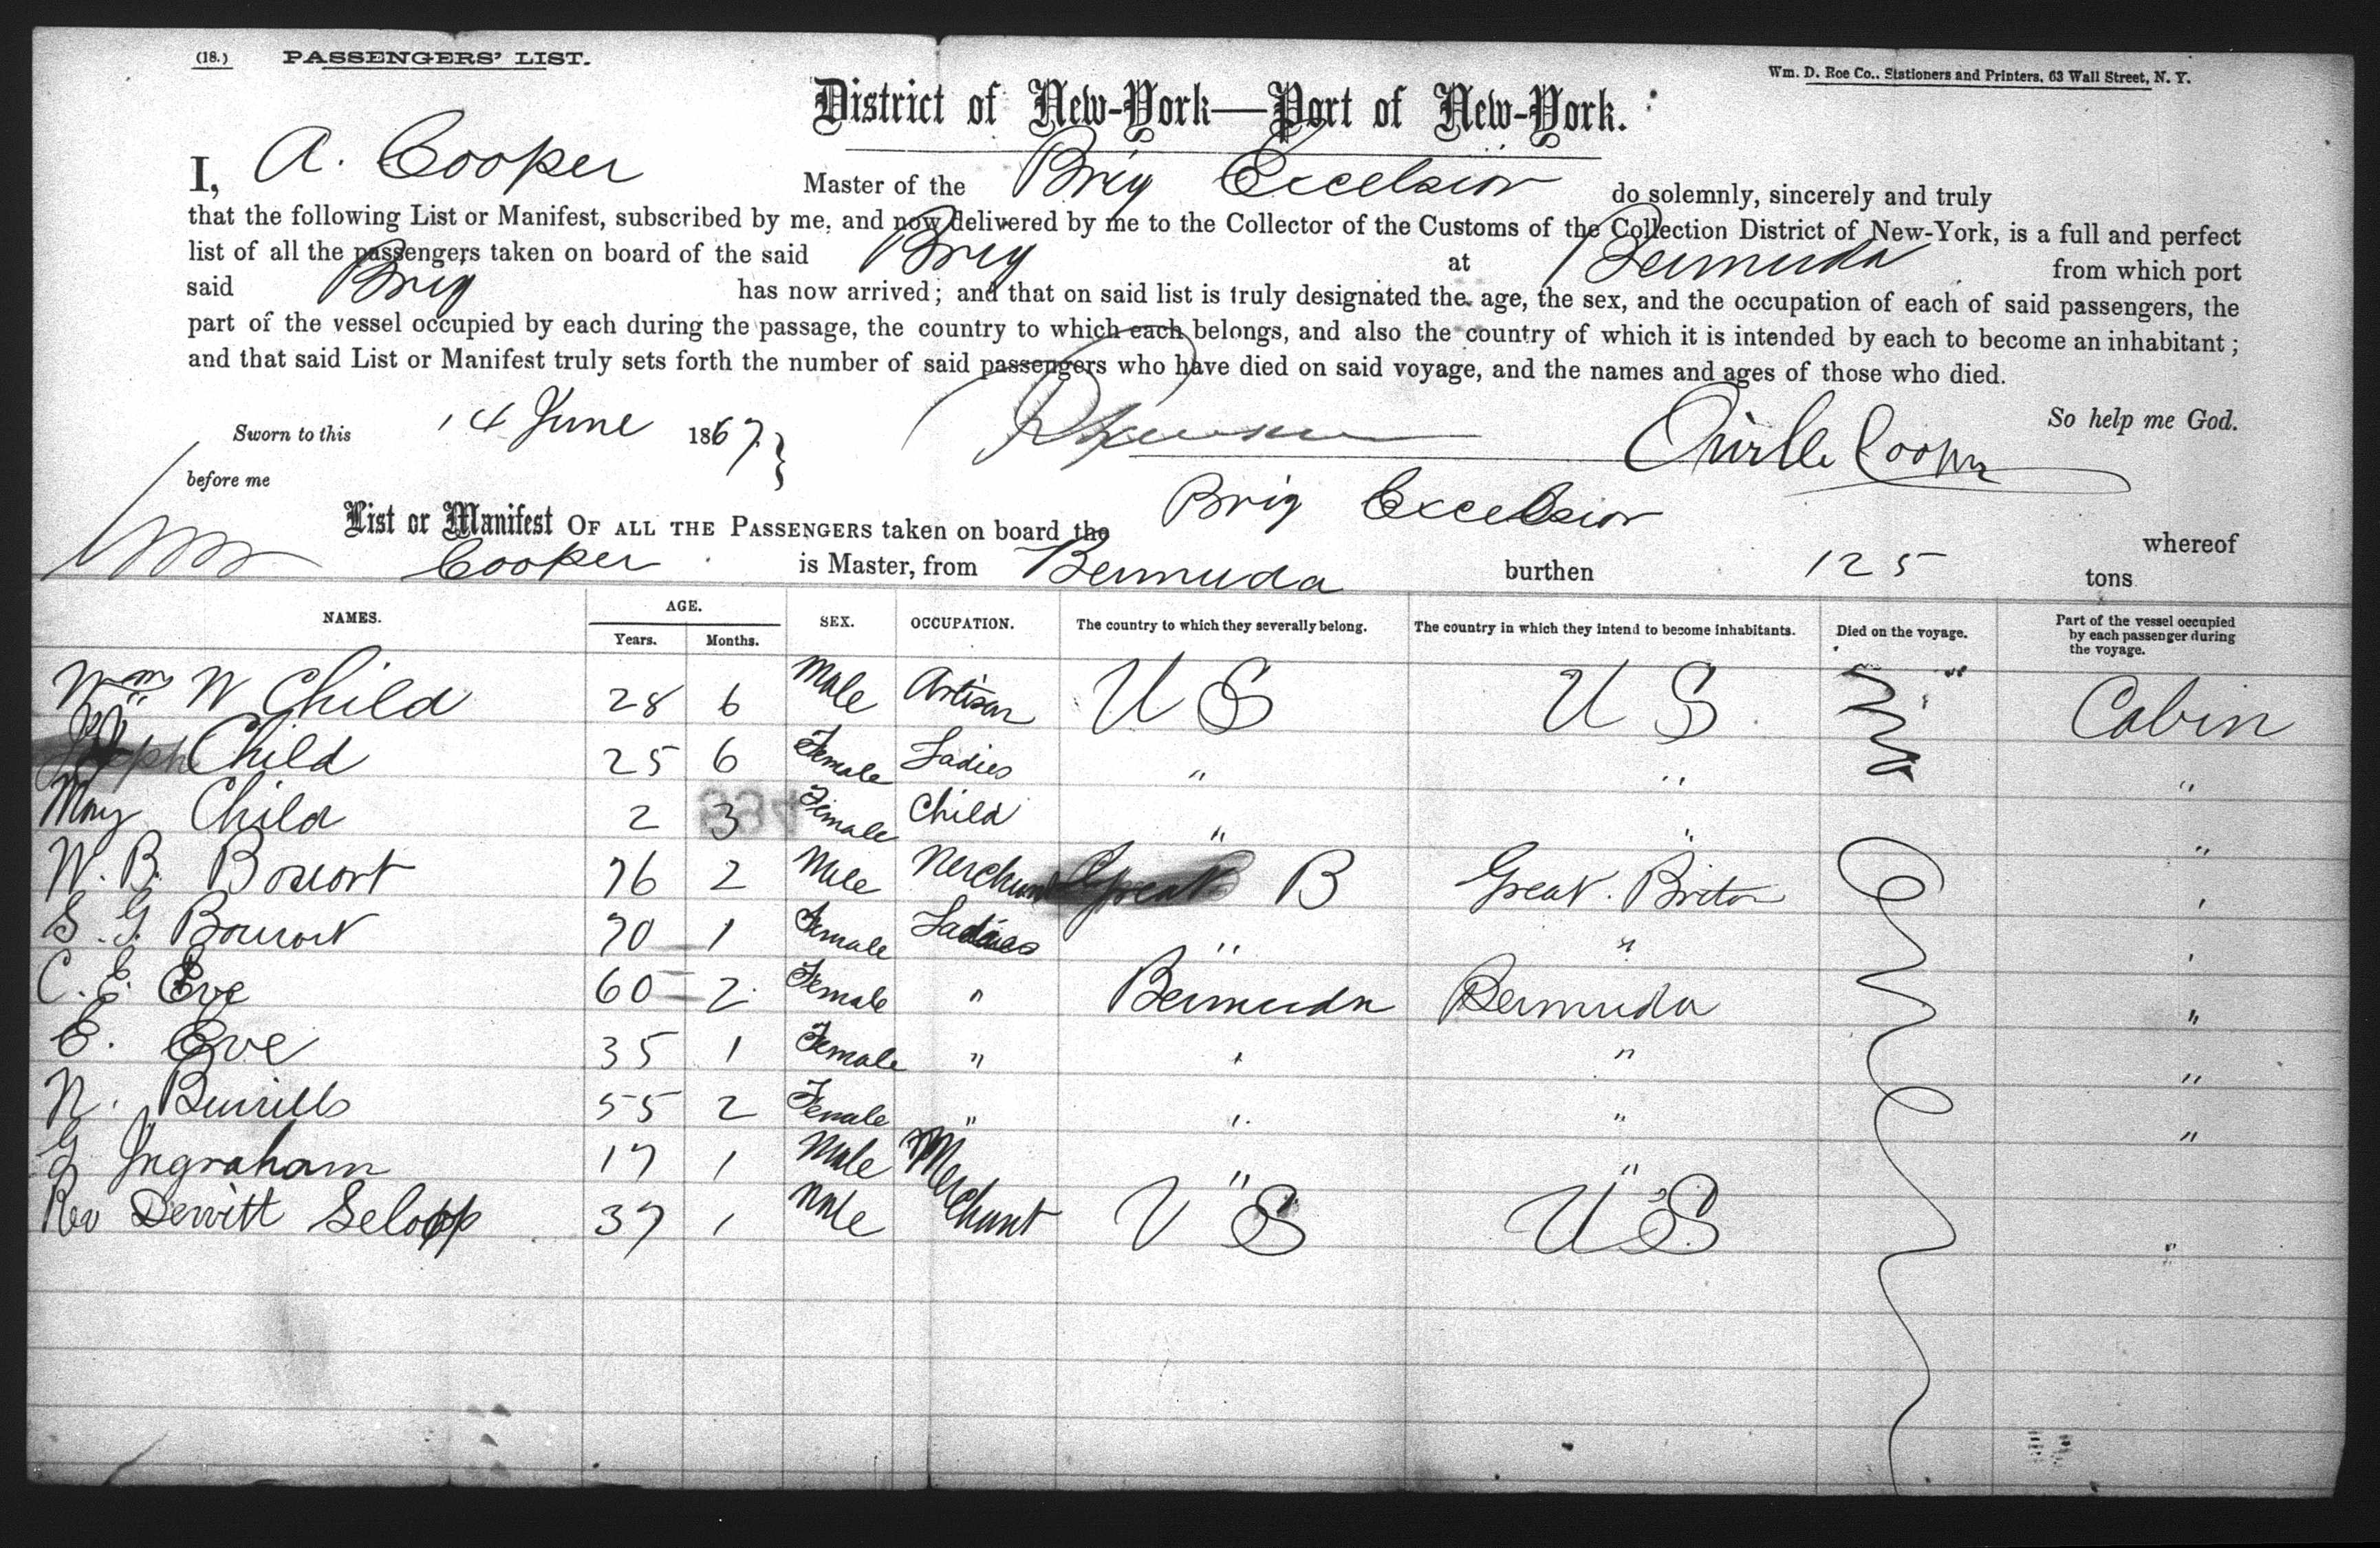 (18.) PASSENGERS' LIST.
Wm. D. Roe Co., Stationers and Printers, 63 Wall Street, N. Y.
District of New-York—Port of New-York.
I, A. Cooper Master of the Brig Excelsior do solemnly, sincerely and truly
that the following List or Manifest, subscribed by me, and now delivered by me to the Collector of the Customs of the Collection District of New-York, is a full and perfect
list of all the passengers taken on board of the said Brig at Bermuda from which port
said Brig has now arrived; and that on said list is truly designated the age, the sex, and the occupation of each of said passengers, the
part of the vessel occupied by each during the passage, the country to which each belongs, and also the country of which it is intended by each to become an inhabitant;
and that said List or Manifest truly sets forth the number of said passengers who have died on said voyage, and the names and ages of those who died.
So help me God.
Sworn to this 14 June 1867 Cooper
before me
List or Manifest OF ALL THE PASSENGERS taken on board the Brig Excelsior whereof
Cooper is Master, from Bermuda burthen 125 tons
NAMES. AGE. Years. Months. SEX. OCCUPATION. The country to which they severally belong. The country in which they intend to become inhabitants. Died on the voyage. Part of the vessel occupied by each passenger during the voyage.
Wm W Child 28 6 Male Artisan U S U S Cabin
Child 25 6 Female Ladies " " "
Mary Child 2 3 Female Child " " "
W. B. 76 2 Male Merchant Great B Great Briton "
S. G. 70 1 Female Ladies " " "
C. E. Eve 60 2 Female " Bermuda Bermuda "
E. Eve 35 1 Female " " " "
N. 55 2 Female " " " "
G Ingraham 17 1 Male Merchant " "
Rev Dewitt 37 1 Male U S U S "